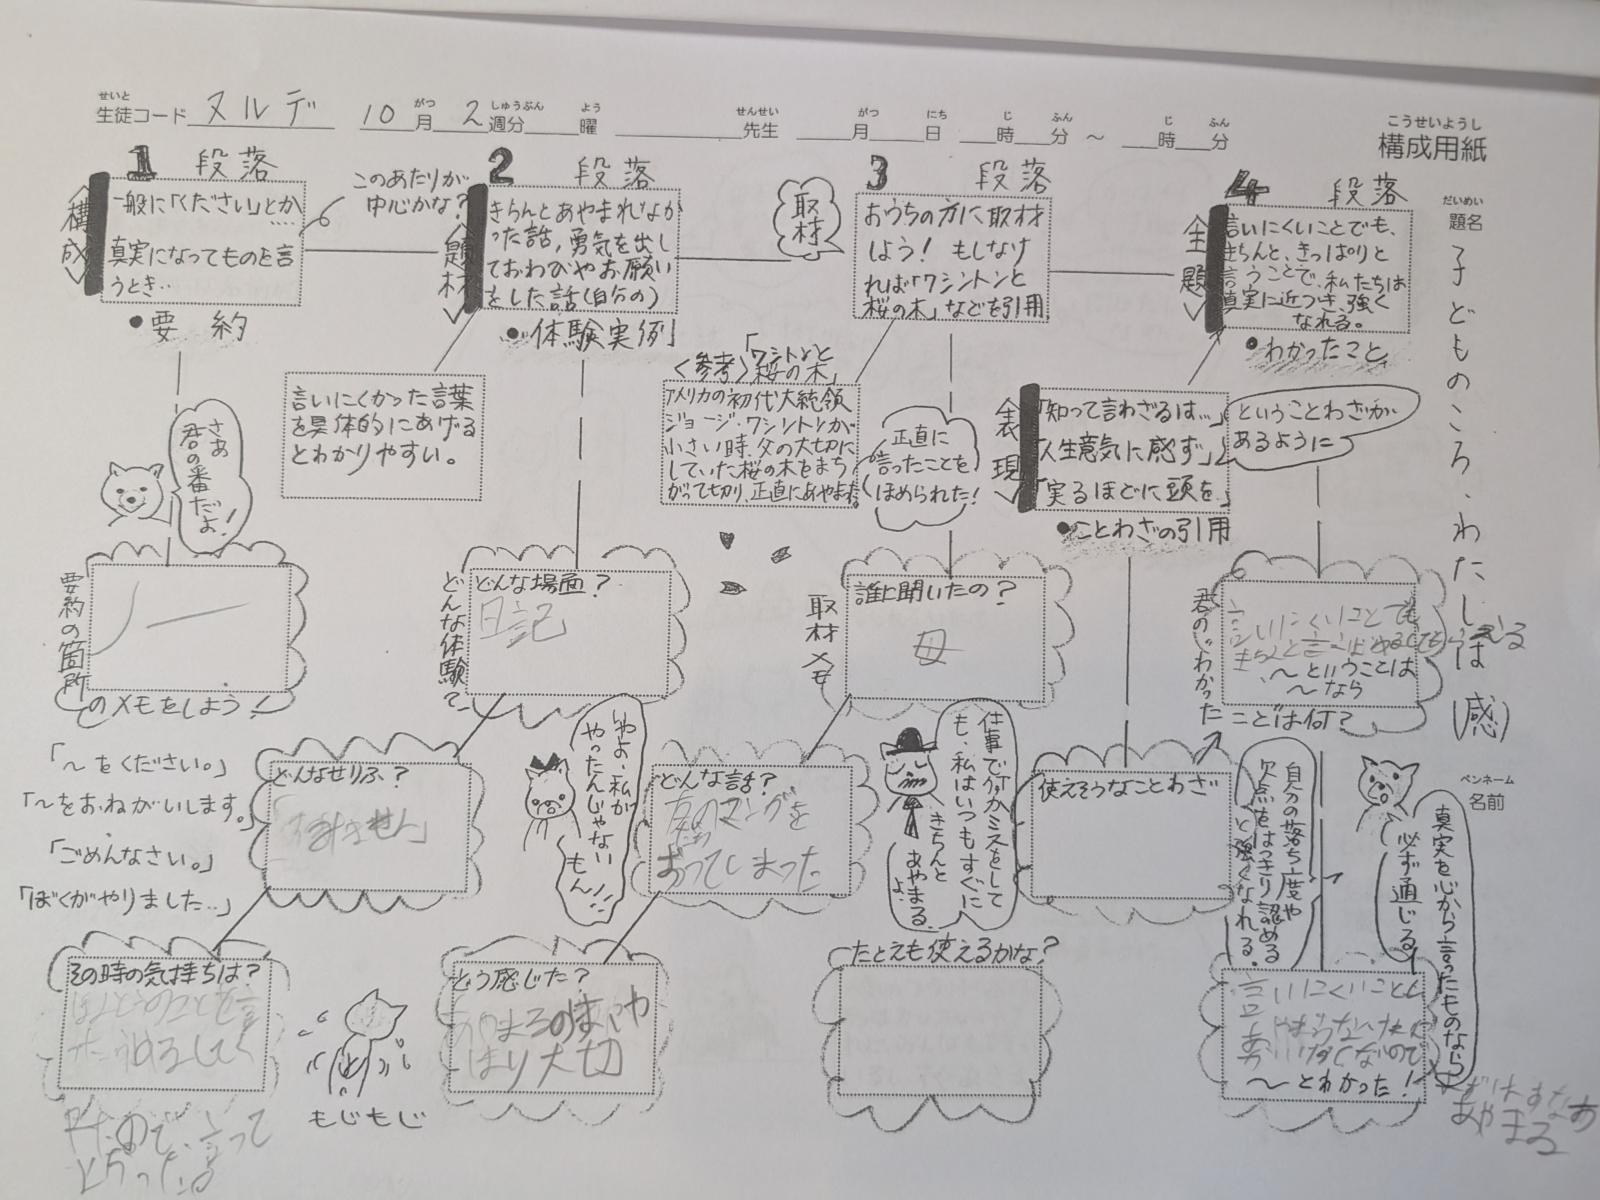 せいと
生徒コード ヌルデ 10月 2週分 曜 先生 月 日 時 分 ～ 時 分
がつ しゅうぶん よう せんせい がつ にち じ ふん じ ふん
こうせいようし
構成用紙
だいめい
題名
子どものころ、わたしは(感)
ペンネーム
名前
1 段落
<構成>
一般に「ください」とか
真実になってものを言
うとき‥
このあたりが
中心かな?
•要約
さあ
君の番だよ!
要約の箇所
のメモをしよう!
2 段落
<題材>
きちんとあやまれなか
った話,勇気を出し
ておわびやお願い
をした話(自分の)
•体験実例
言いにくかった言葉
を具体的にあげる
とわかりやすい。
どんな体験?
どんな場面?
日記
「～をください。」
「～をおねがいします。」
「ごめんなさい。」
「ぼくがやりました‥」
どんなせりふ?
「すみません」
いやよ、私が
やったんじゃない
もん!!
その時の気持ちは?
もじもじ
3 段落
取材
おうちの方に取材
しよう! もしなけ
れば「ワシントンと
桜の木」などを引用
<参考>「ワシントンと
桜の木」
アメリカの初代大統領
ジョージ・ワシントンが
小さい時、父の大切に
していた桜の木をまち
がって切り、正直にあやまった
正直に
言ったことを
ほめられた!
取材メモ
誰に聞いたの?
母
どんな話?
おってしまった
仕事で何かミスをして
も、私はいつもすぐに
きちんと
あやまる
よ
どう感じた?
あやまるのはいや
はり大切
たとえも使えるかな?
4 段落
<主題>
言いにくいことでも、
きちんと、きっぱりと
言うことで、私たちは
真実に近づき、強く
なれる。
•わかったこと
<表現>
「知って言わざるは…」
「人生意気に感ず」
「実るほどに頭を」
ということわざが
あるように
•ことわざの引用
使えそうなことわざ
君のじわかった
ことは何?
言いにくいことでも
～ということは
～なら
自分の落ち度や
欠点をはっきり認める
と強くなれる。
真実を心から言ったものなら
必ず通じる
言いにくいことし
～とわかった!
あやまる